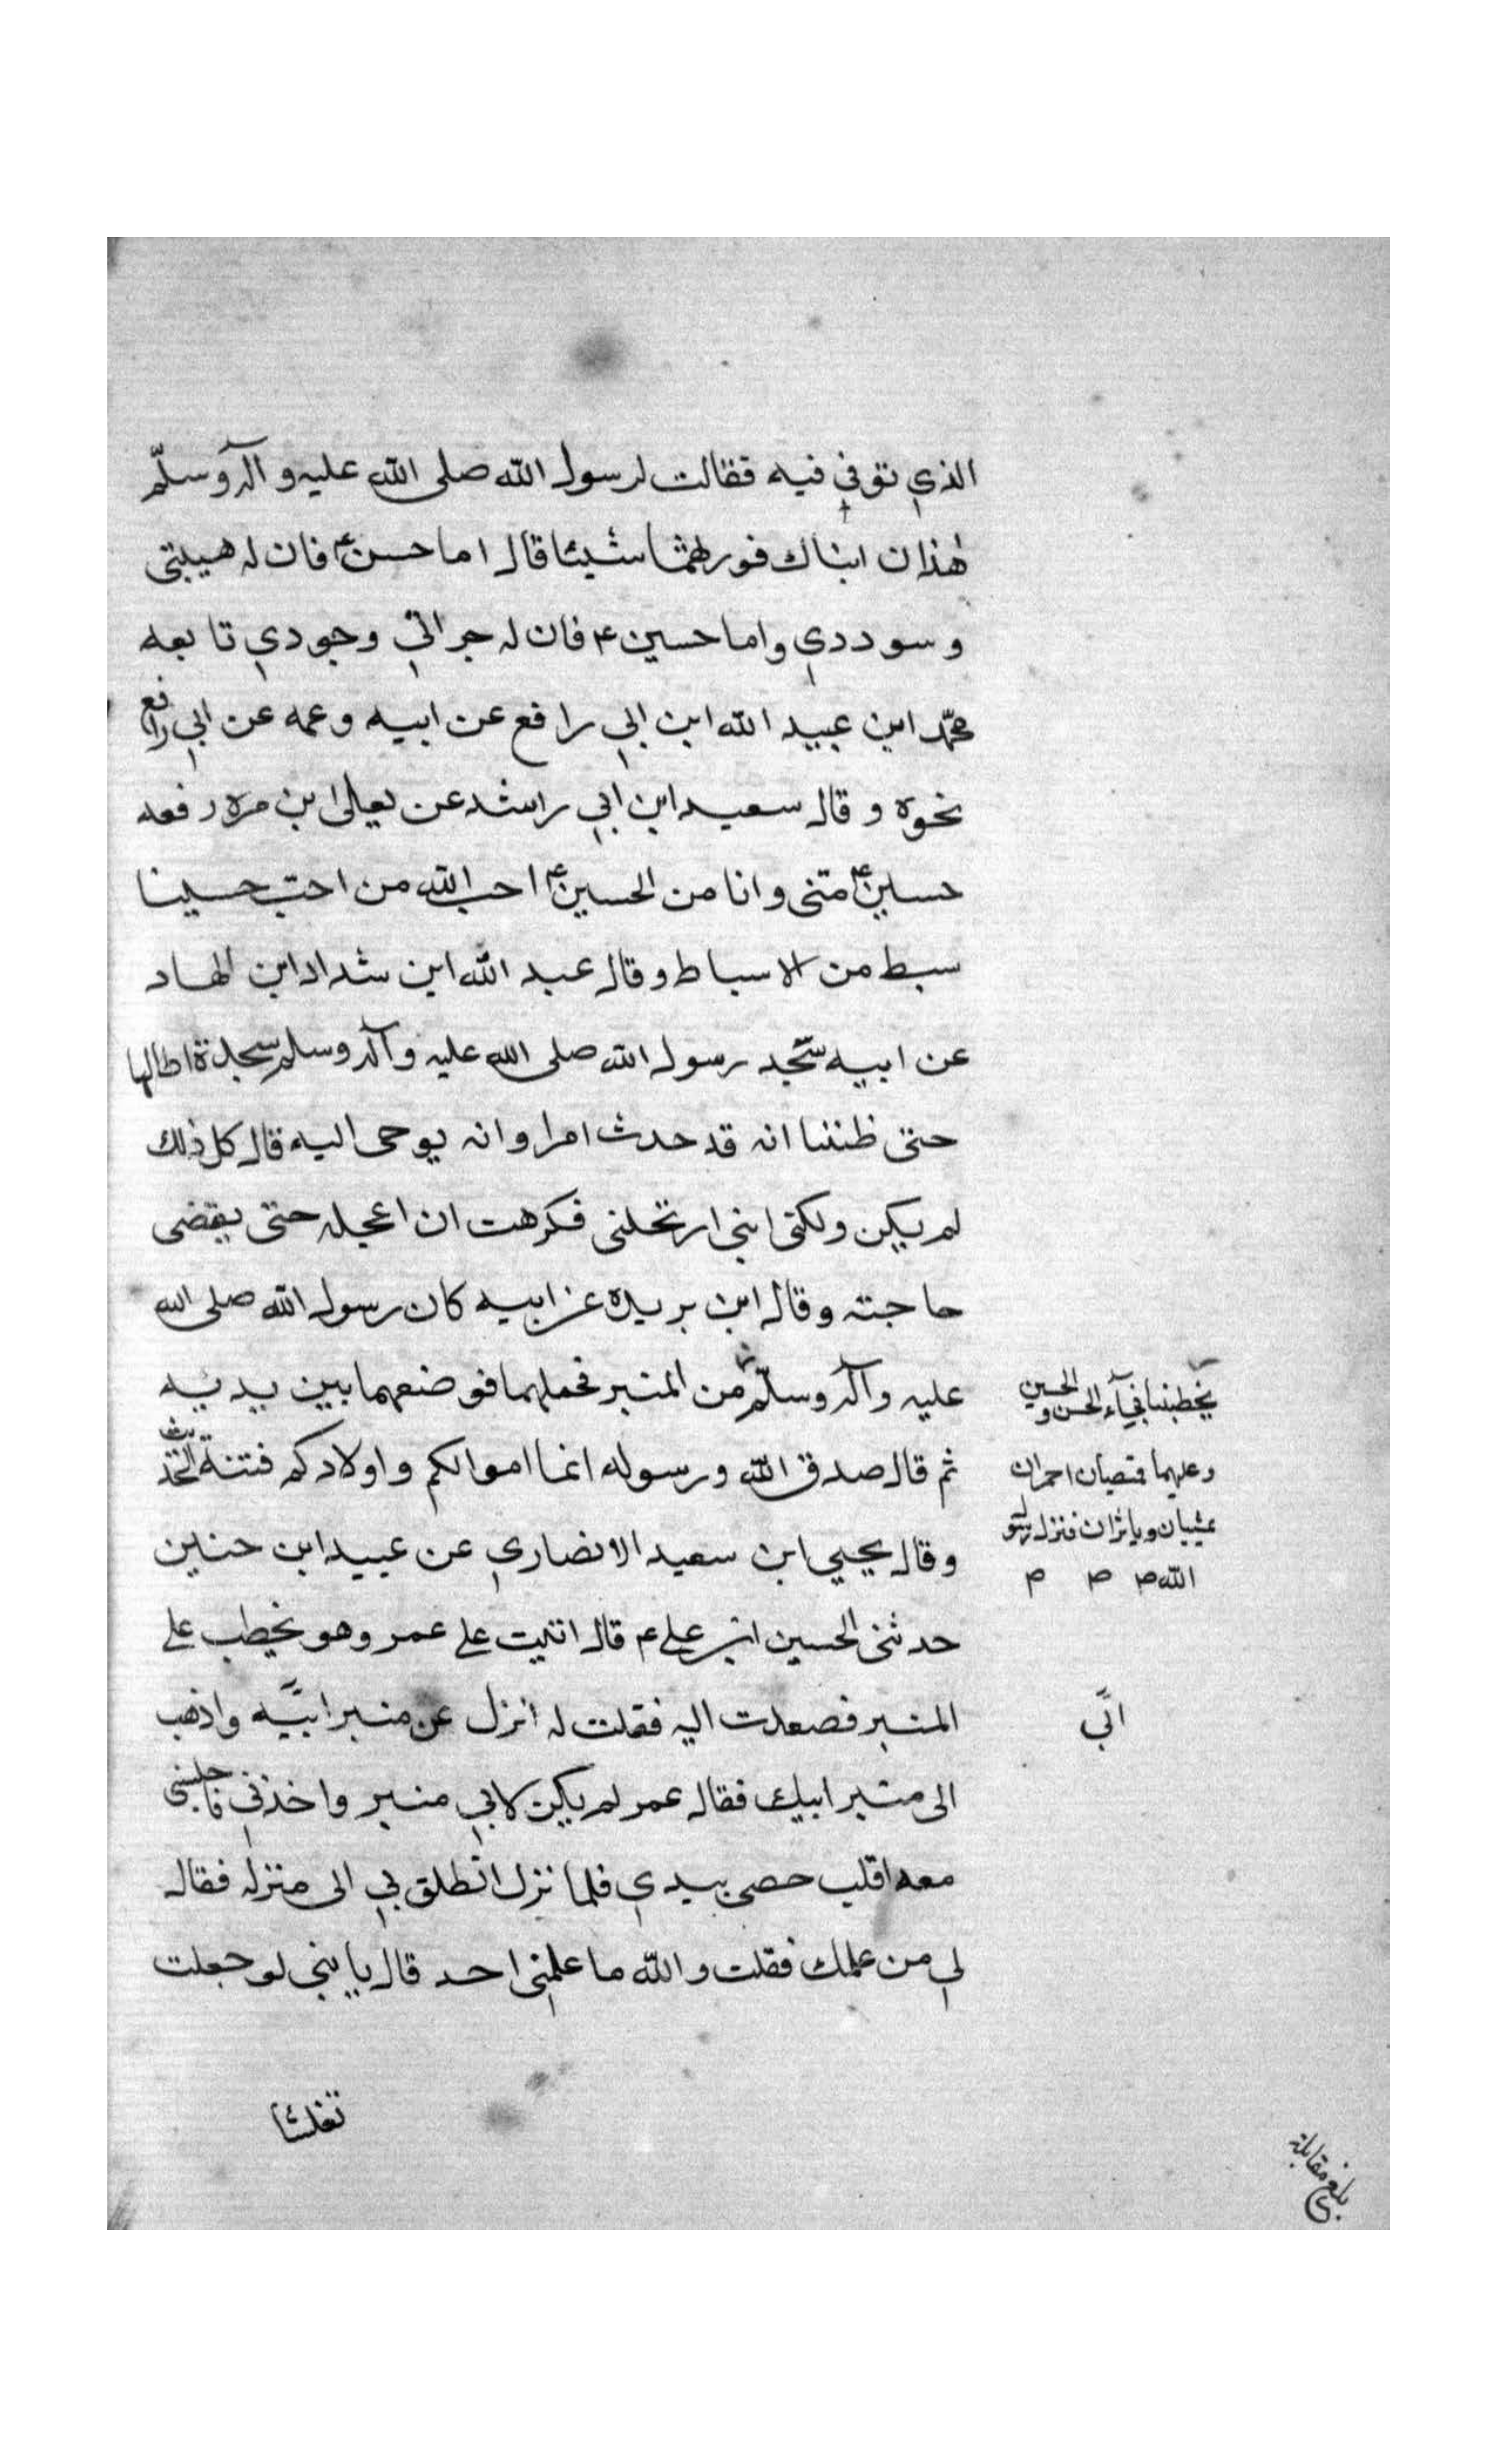 الذي توفي فيه فقالت لرسول الله صلى الله عليه وآله وسلّم
هٰذان ابناك فورثهما شيئا قال اما حسن ع فان له هيبتى
وسوددي واما حسين ع فان له جراتي وجودي تابعه
محمّد ابن عبيد الله ابن ابي رافع عن ابيه وعمه عن ابي رافع
نحوه وقال سعيد ابن ابي راشد عن يعلى ابن مره رفعه
حسين ع منى وانا من الحسين ع احب الله من احبّ حسينا
سبط من الاسباط وقال عبد الله ابن شداد ابن الهاد
عن ابيه سجد رسول الله صلى الله عليه وآله وسلم سجدة اطالها
حتى ظننا انه قد حدث امرا وانه يوحى اليه قال كل ذلك
لم يكن ولكن ابنى ارتحلنى فكرهت ان اعجله حتى يقضى
حاجته وقال ابن بريدة عن ابيه كان رسول الله صلى الله
عليه وآله وسلّم من المنبر فحملهما فوضعهما بين يديه
يخطبنا فجآء الحسن والحسين
وعليهما قميصان احمران
يمشيان ويعثران فنزل رسول
الله ص م م
ثم قال صدق الله ورسوله انما اموالكم واولادكم فتنة
وقال يحيي ابن سعيد الانصاري عن عبيد ابن حنين
حدثنى الحسين ابن على ع قال اتيت على عمر وهو يخطب على
المنبر فصعدت اليه فقلت له انزل عن منبر ابيه واذهب
ابي
الى منبر ابيك فقال عمر لم يكن لابي منبر واخذني فاجلسنى
معه اقلب حصى بيدي فلما نزل انطلق بي الى منزله فقال
لي من علمك فقلت والله ما علمني احد قال يا بنى لو جعلت
تغشانا
بلغ مقابلة